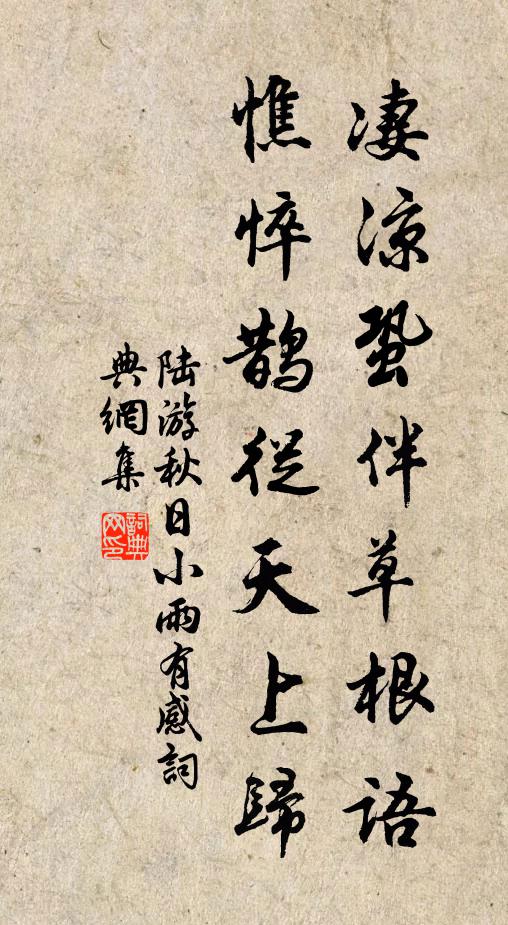 凄凉蛩伴草根語
憔悴鵲從天上歸
陆游秋日小雨有感詞
典網集
詞典网印